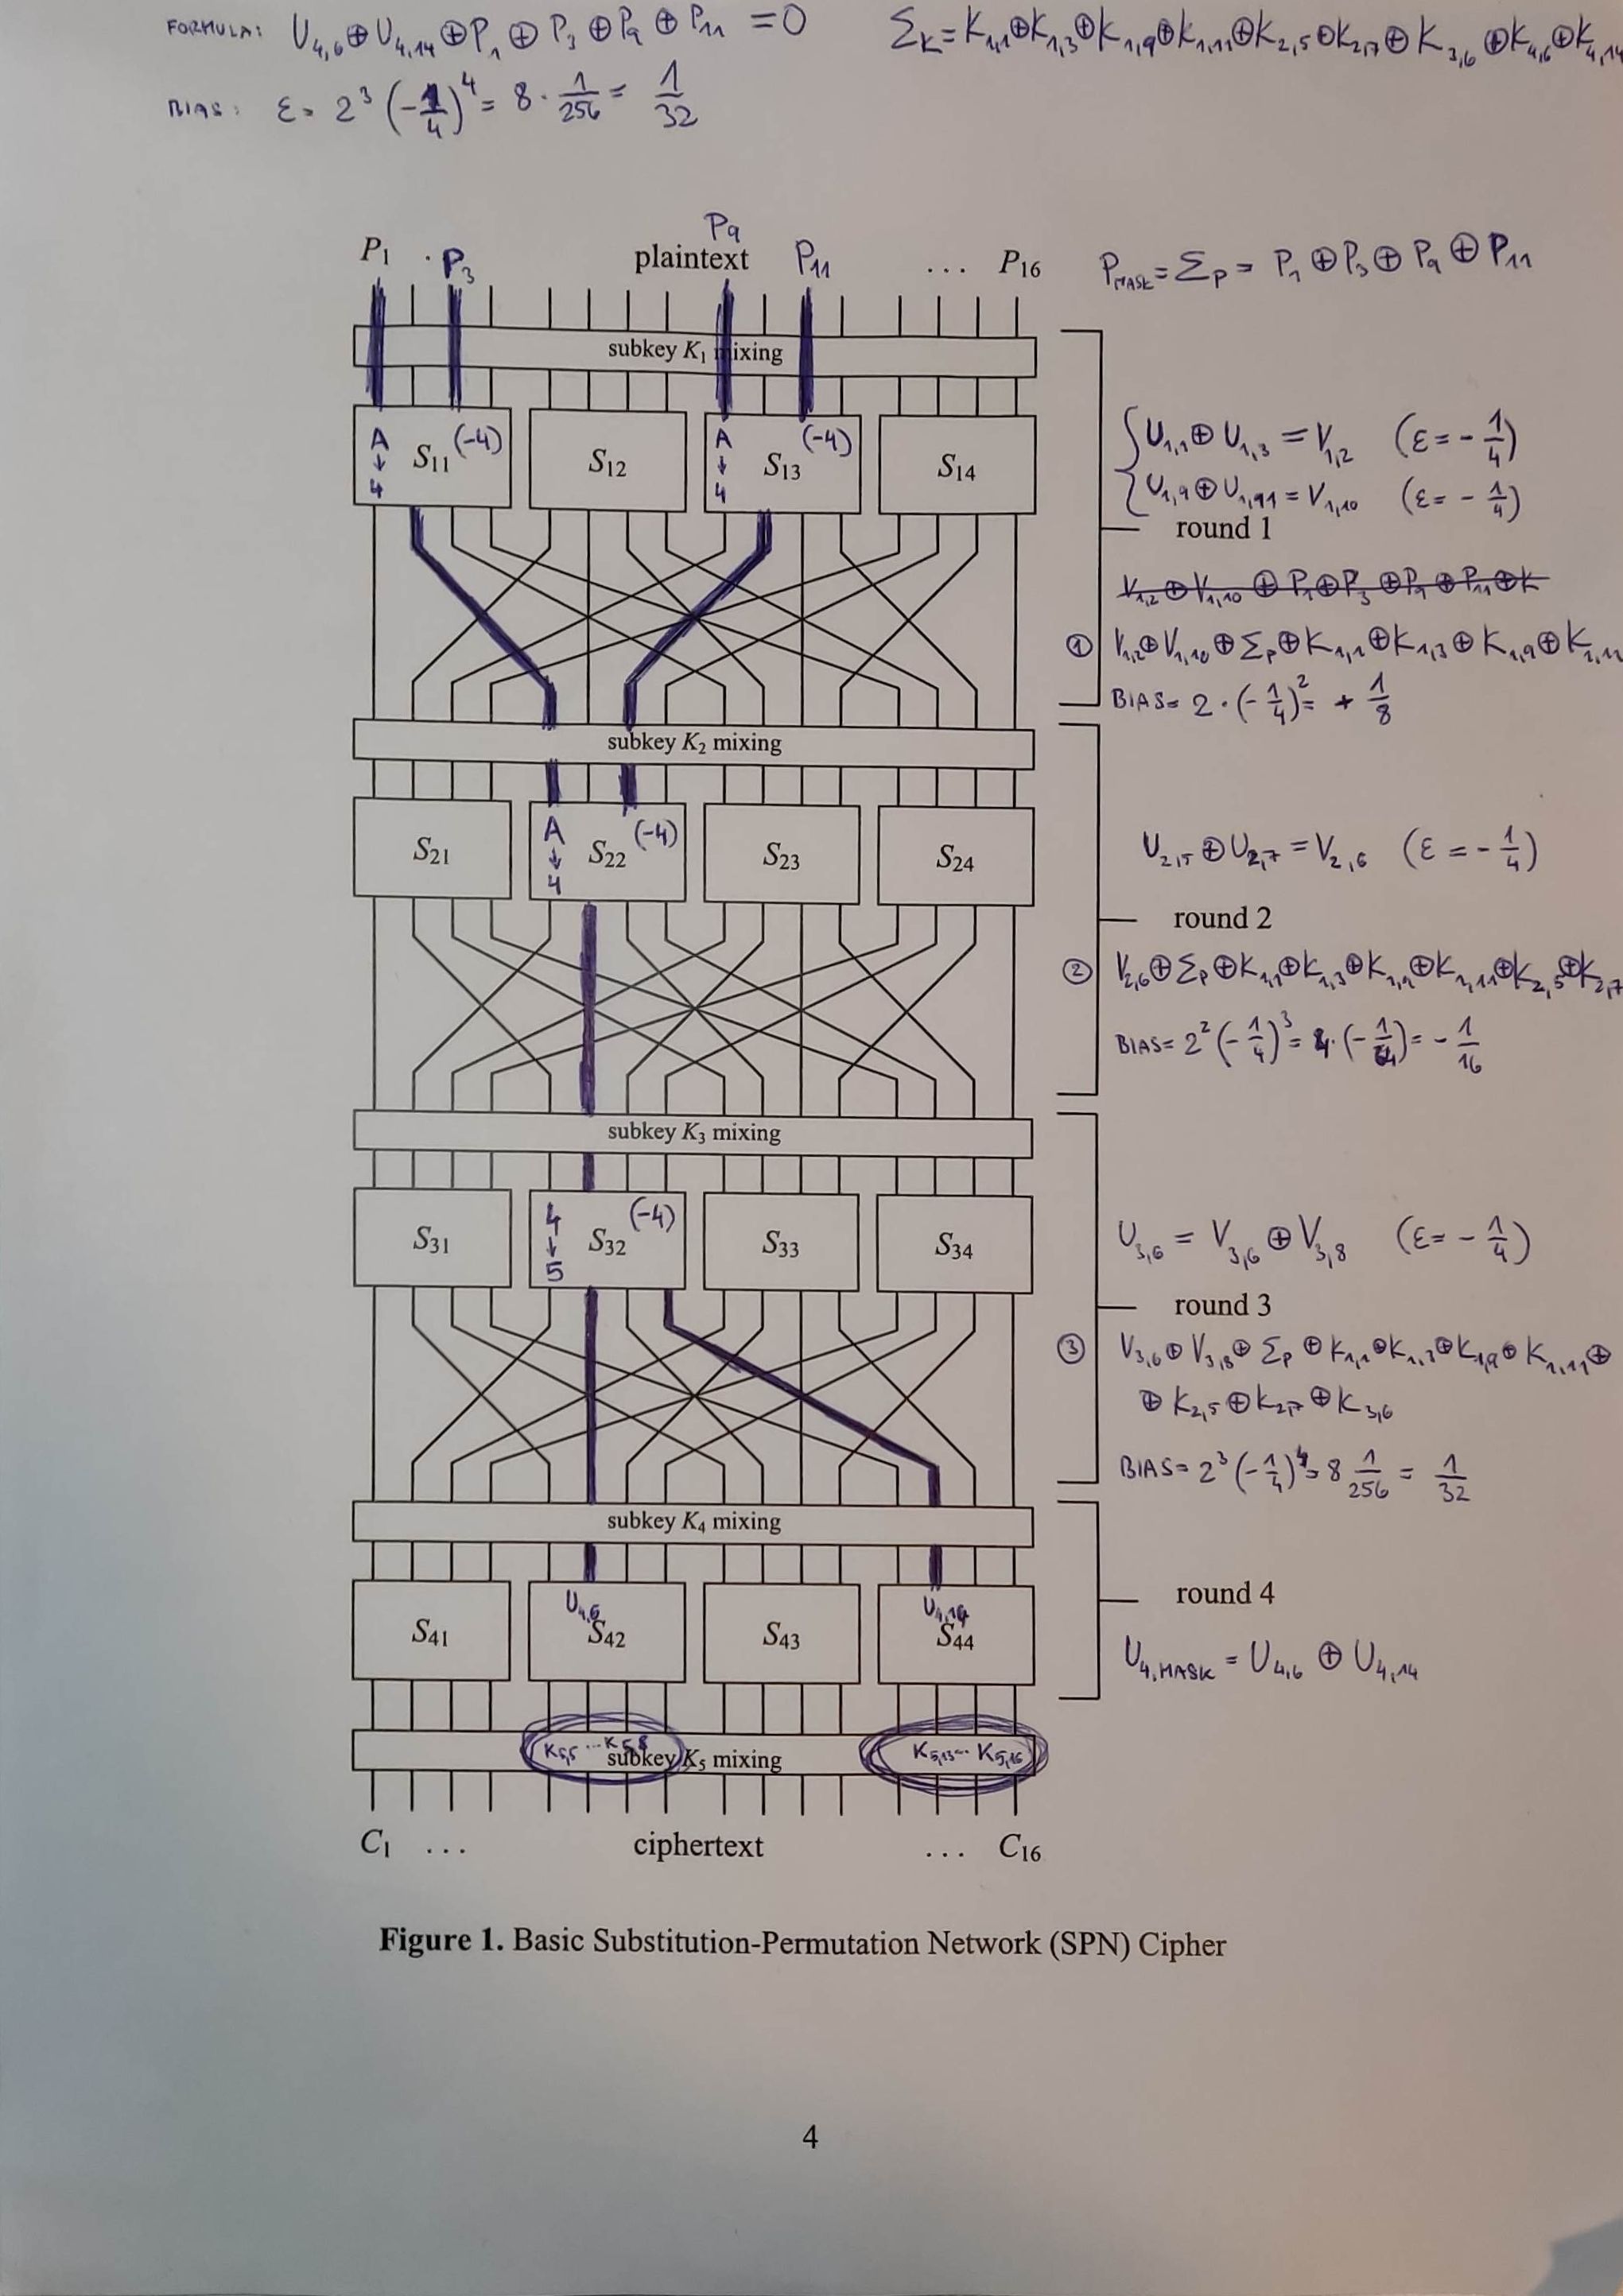 FORMULA: U₄,₆ ⊕ U₄,₁₄ ⊕ P₁ ⊕ P₃ ⊕ P₉ ⊕ P₁₁ = 0
Σ_K = K₁,₁ ⊕ K₁,₃ ⊕ K₁,₉ ⊕ K₁,₁₁ ⊕ K₂,₅ ⊕ K₂,₇ ⊕ K₃,₆ ⊕ K₄,₆ ⊕ K₄,₁₄
BIAS: ε = 2³ (-1/4)⁴ = 8 · 1/256 = 1/32
P₉
P₁ · P₃ plaintext P₁₁ ... P₁₆
P_MASK = Σ_P = P₁ ⊕ P₃ ⊕ P₉ ⊕ P₁₁
subkey K₁ mixing
A ↓ 4 S₁₁ (-4)
S₁₂
A ↓ 4 S₁₃ (-4)
S₁₄
U₁,₁ ⊕ U₁,₃ = V₁,₂ (ε = -1/4)
U₁,₉ ⊕ U₁,₁₁ = V₁,₁₀ (ε = -1/4)
round 1
V₁,₂ ⊕ V₁,₁₀ ⊕ P₁ ⊕ P₃ ⊕ P₉ ⊕ P₁₁ ⊕ K
① V₁,₂ ⊕ V₁,₁₀ ⊕ Σ_P ⊕ K₁,₁ ⊕ K₁,₃ ⊕ K₁,₉ ⊕ K₁,₁₁
BIAS = 2 · (-1/4)² = + 1/8
subkey K₂ mixing
S₂₁
A ↓ 4 S₂₂ (-4)
S₂₃
S₂₄
U₂,₅ ⊕ U₂,₇ = V₂,₆ (ε = -1/4)
round 2
② V₂,₆ ⊕ Σ_P ⊕ K₁,₁ ⊕ K₁,₃ ⊕ K₁,₉ ⊕ K₁,₁₁ ⊕ K₂,₅ ⊕ K₂,₇
BIAS = 2² (-1/4)³ = 4 · (-1/64) = - 1/16
subkey K₃ mixing
S₃₁
4 ↓ 5 S₃₂ (-4)
S₃₃
S₃₄
U₃,₆ = V₃,₆ ⊕ V₃,₈ (ε = -1/4)
round 3
③ V₃,₆ ⊕ V₃,₈ ⊕ Σ_P ⊕ K₁,₁ ⊕ K₁,₃ ⊕ K₁,₉ ⊕ K₁,₁₁ ⊕
⊕ K₂,₅ ⊕ K₂,₇ ⊕ K₃,₆
BIAS = 2³ (-1/4)⁴ = 8 1/256 = 1/32
subkey K₄ mixing
S₄₁
U₄,₆ S₄₂
S₄₃
U₄,₁₄ S₄₄
round 4
U₄,MASK = U₄,₆ ⊕ U₄,₁₄
K₅,₅ ... K₅,₈ subkey K₅ mixing K₅,₁₃ ... K₅,₁₆
C₁ ... ciphertext ... C₁₆
Figure 1. Basic Substitution-Permutation Network (SPN) Cipher
4